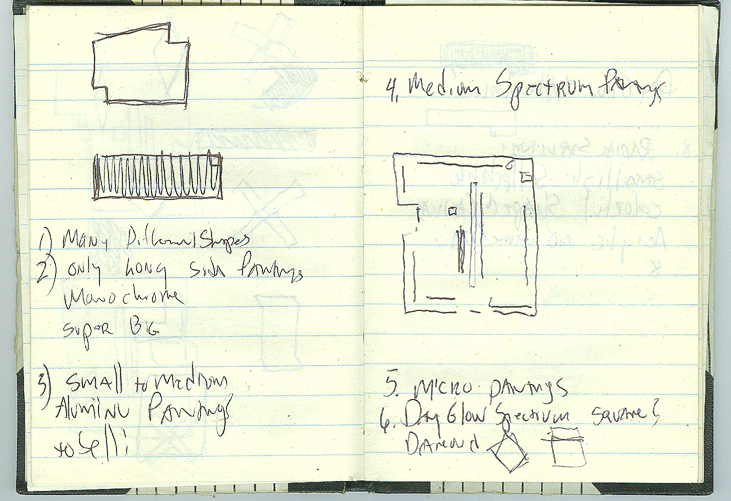 1) Many Different Shapes
2) only Long side Pantings
Monochrome
super BG
3) Small to medium
Aluminu Pantings
to Sell!
4. Medium Spectrum Pantings
5. Micro-pantings
6. Day Glow Spectrum Square &
Damond